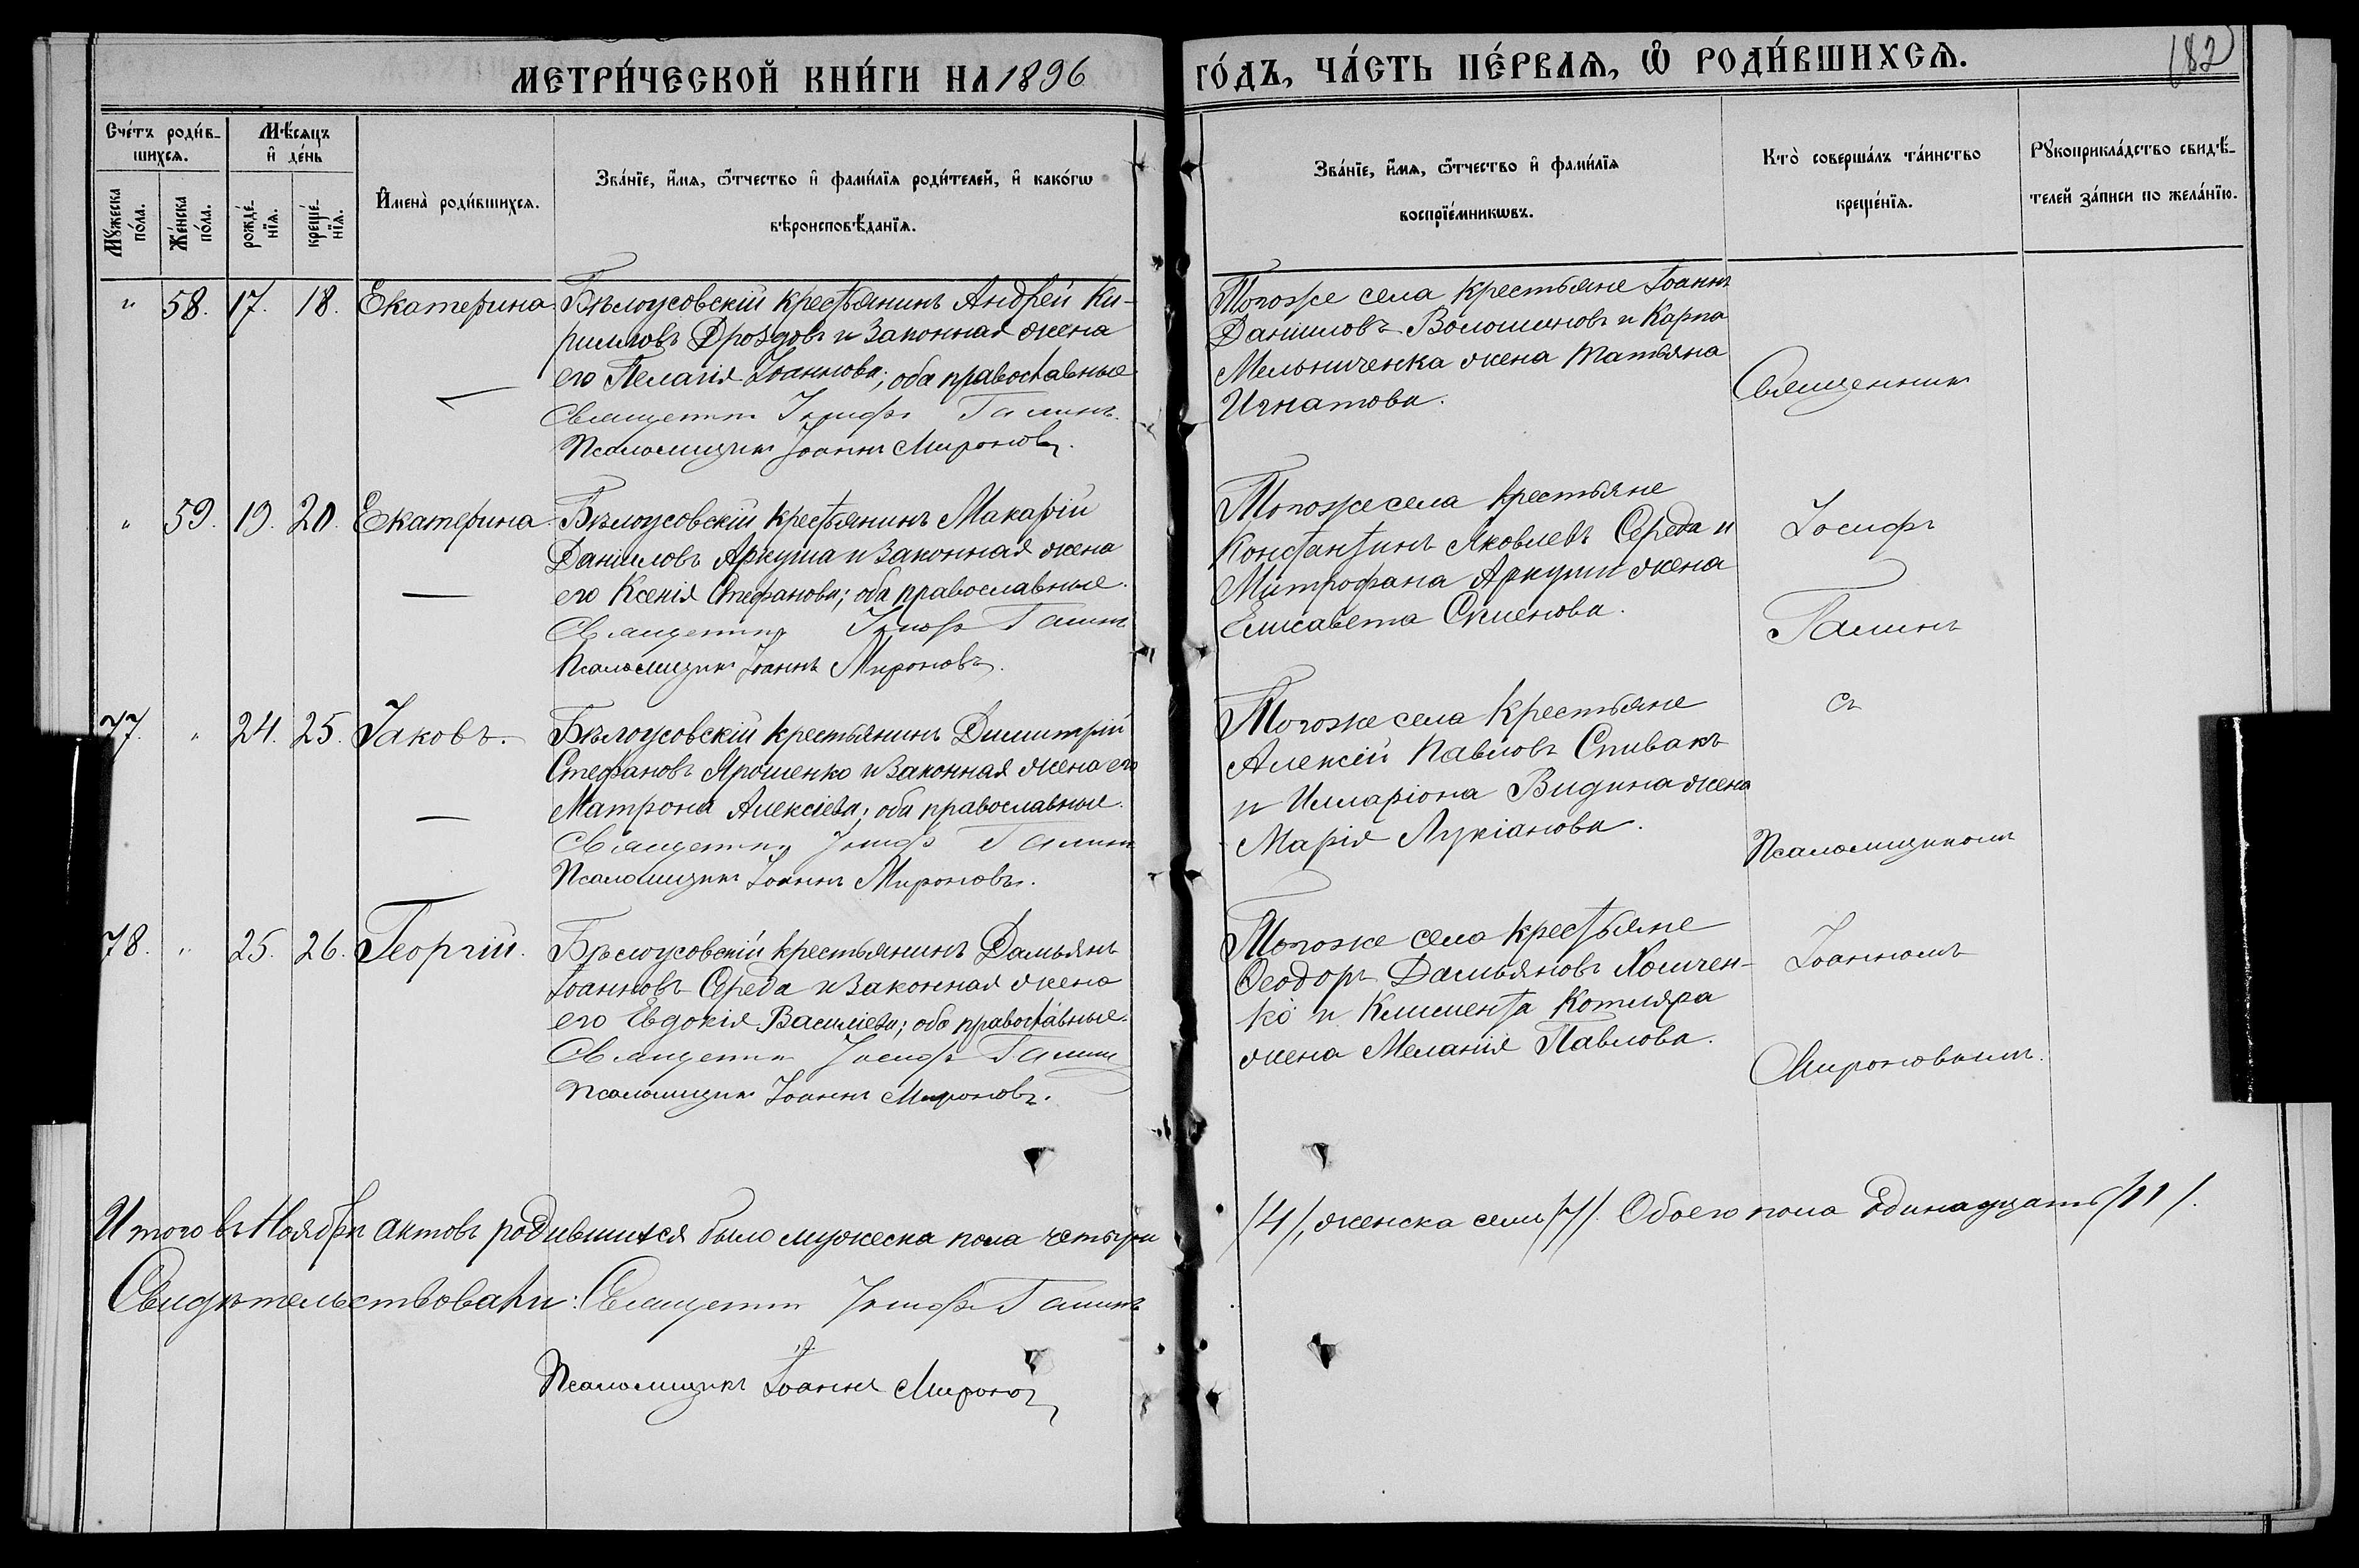 МЕТРИ́ЧЕСКОЙ КНИ́ГИ НА 1896
ГО́ДЪ, ЧА́СТЬ ПЕ́РВАѦ, Ѡ҆ РОДИ́ВШИХСѦ.
182
Сче́тъ роди́в-
шихсѧ.
Мѣ́сѧцъ
и҆ де́нь
Мꙋ́жеска
по́ла.
Же́нска
по́ла.
рожде́-
нїѧ.
креще́-
нїѧ.
И҆мена̀ роди́вшихсѧ.
Зва́нїе, и҆́мѧ, ѻ҆́тчество и҆ фами́лїѧ роди́телей, и҆ како́гѡ
вѣроисповѣ́данїѧ.
Зва́нїе, и҆́мѧ, ѻ҆́тчество и҆ фами́лїѧ
воспрїе́мникѡвъ.
Кто̀ соверша́лъ та́инство
креще́нїѧ.
Рꙋкоприкла́дство свидѣ́-
телей за́писи по жела́нїю.
" 58. 17. 18. Екатерина
Бѣлоусовскій крестьянинъ Андрей Ки-
рилловъ Дроздовъ и законная жена
его Пелагія Іоаннова; оба православные
Священникъ Іосифъ Галинъ.
Псаломщикъ Іоаннъ Мироновъ.
Тогоже села крестьяне Іоаннъ
Даніиловъ Волошиновъ и Карпа
Мельниченка жена Татьяна
Игнатова.
Священникъ
" 59. 19. 20. Екатерина
Бѣлоусовскій крестьянинъ Макарій
Даніиловъ Аркуша и законная жена
его Ксенія Стефанова; оба православные.
Священникъ Іосифъ Галинъ
Псаломщикъ Іоаннъ Мироновъ.
Тогоже села крестьяне
Константинъ Яковлевъ Середа и
Митрофана Аркуши жена
Елисавета Семенова.
Іосифъ
Галинъ
77. " 24. 25. Іаковъ.
Бѣлоусовскій крестьянинъ Димитрій
Стефановъ Ярошенко и законная жена его
Матрона Алексіева; оба православные.
Священникъ Іосифъ Галинъ
Псаломщикъ Іоаннъ Мироновъ.
Тогоже села крестьяне
Алексій Павловъ Спивакъ
и Илларіона Видина жена
Марія Лукіанова.
съ
Псаломщикомъ
78. " 25. 26. Георгій.
Бѣлоусовскій крестьянинъ Дамьянъ
Іоанновъ Середа и законная жена
его Евдокія Василіева; оба православные.
Священникъ Іосифъ Галинъ
Псаломщикъ Іоаннъ Мироновъ.
Тогоже села крестьяне
Ѳеодоръ Дамьяновъ Хомчен-
ко и Климента Котляра
жена Меланія Павлова.
Іоанномъ
Мироновымъ.
Итого въ Ноябрѣ актовъ родившихся было мужеска пола четыре
/4/, женска семь /7/. Обоего пола одинадцать /11/.
Свидѣтельствовали: Священникъ Іосифъ Галинъ
Псаломщикъ Іоаннъ Мироновъ